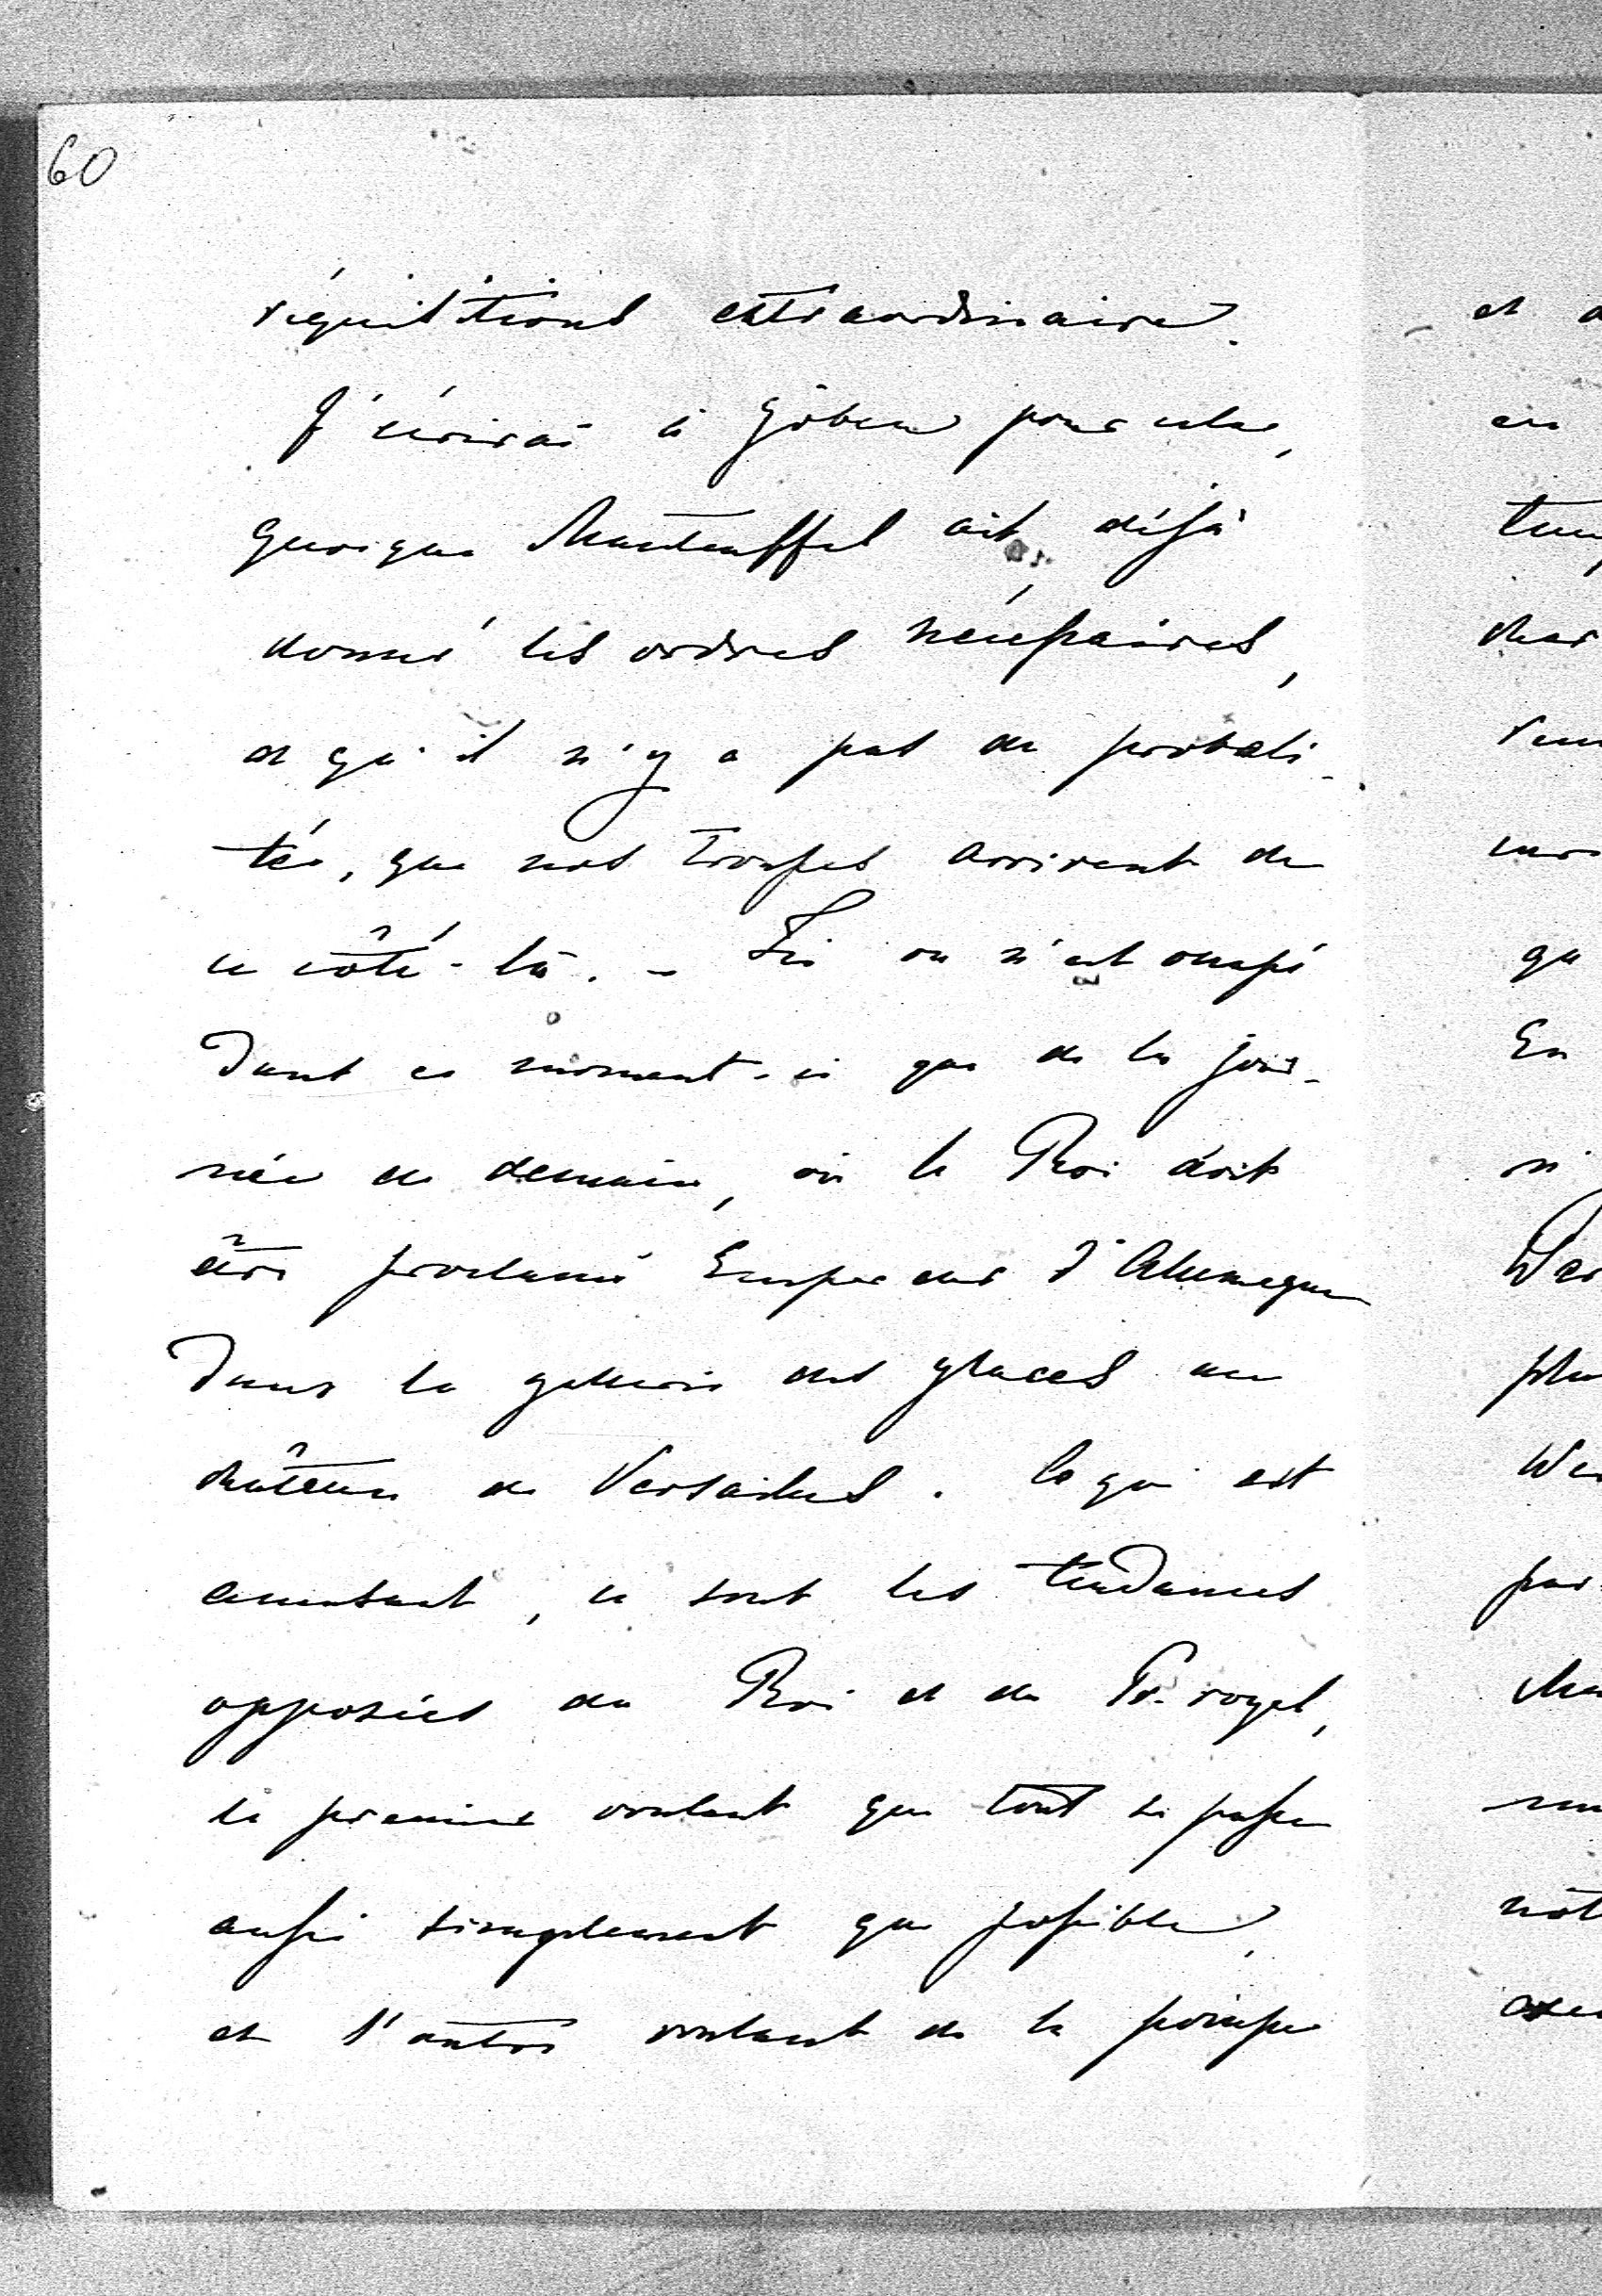 60
réquisitions extraordinaires.
J'écrirai à Göben pour cela,
quoique Manteuffel ait déjà
donné les ordres nécessaires,
et qu'il n'y a pas de probabli-
tée, que nos troupes arrivent de
ce côté-là. - Ici on n'est occupé
dans ce moment-ci que de la jour-
née de demain, où le Roi doit
être proclamé Empereur d'Allemagne
dans la gallerie des glaces au
château de Versailles. Ce qui est
amusant, ce sont les tendances
opposées du Roi et du Pr. royal,
le premier voulant que tout se passe
aussi simplement que possible,
et l'autre voulant de la pompe
et
en
qu
En